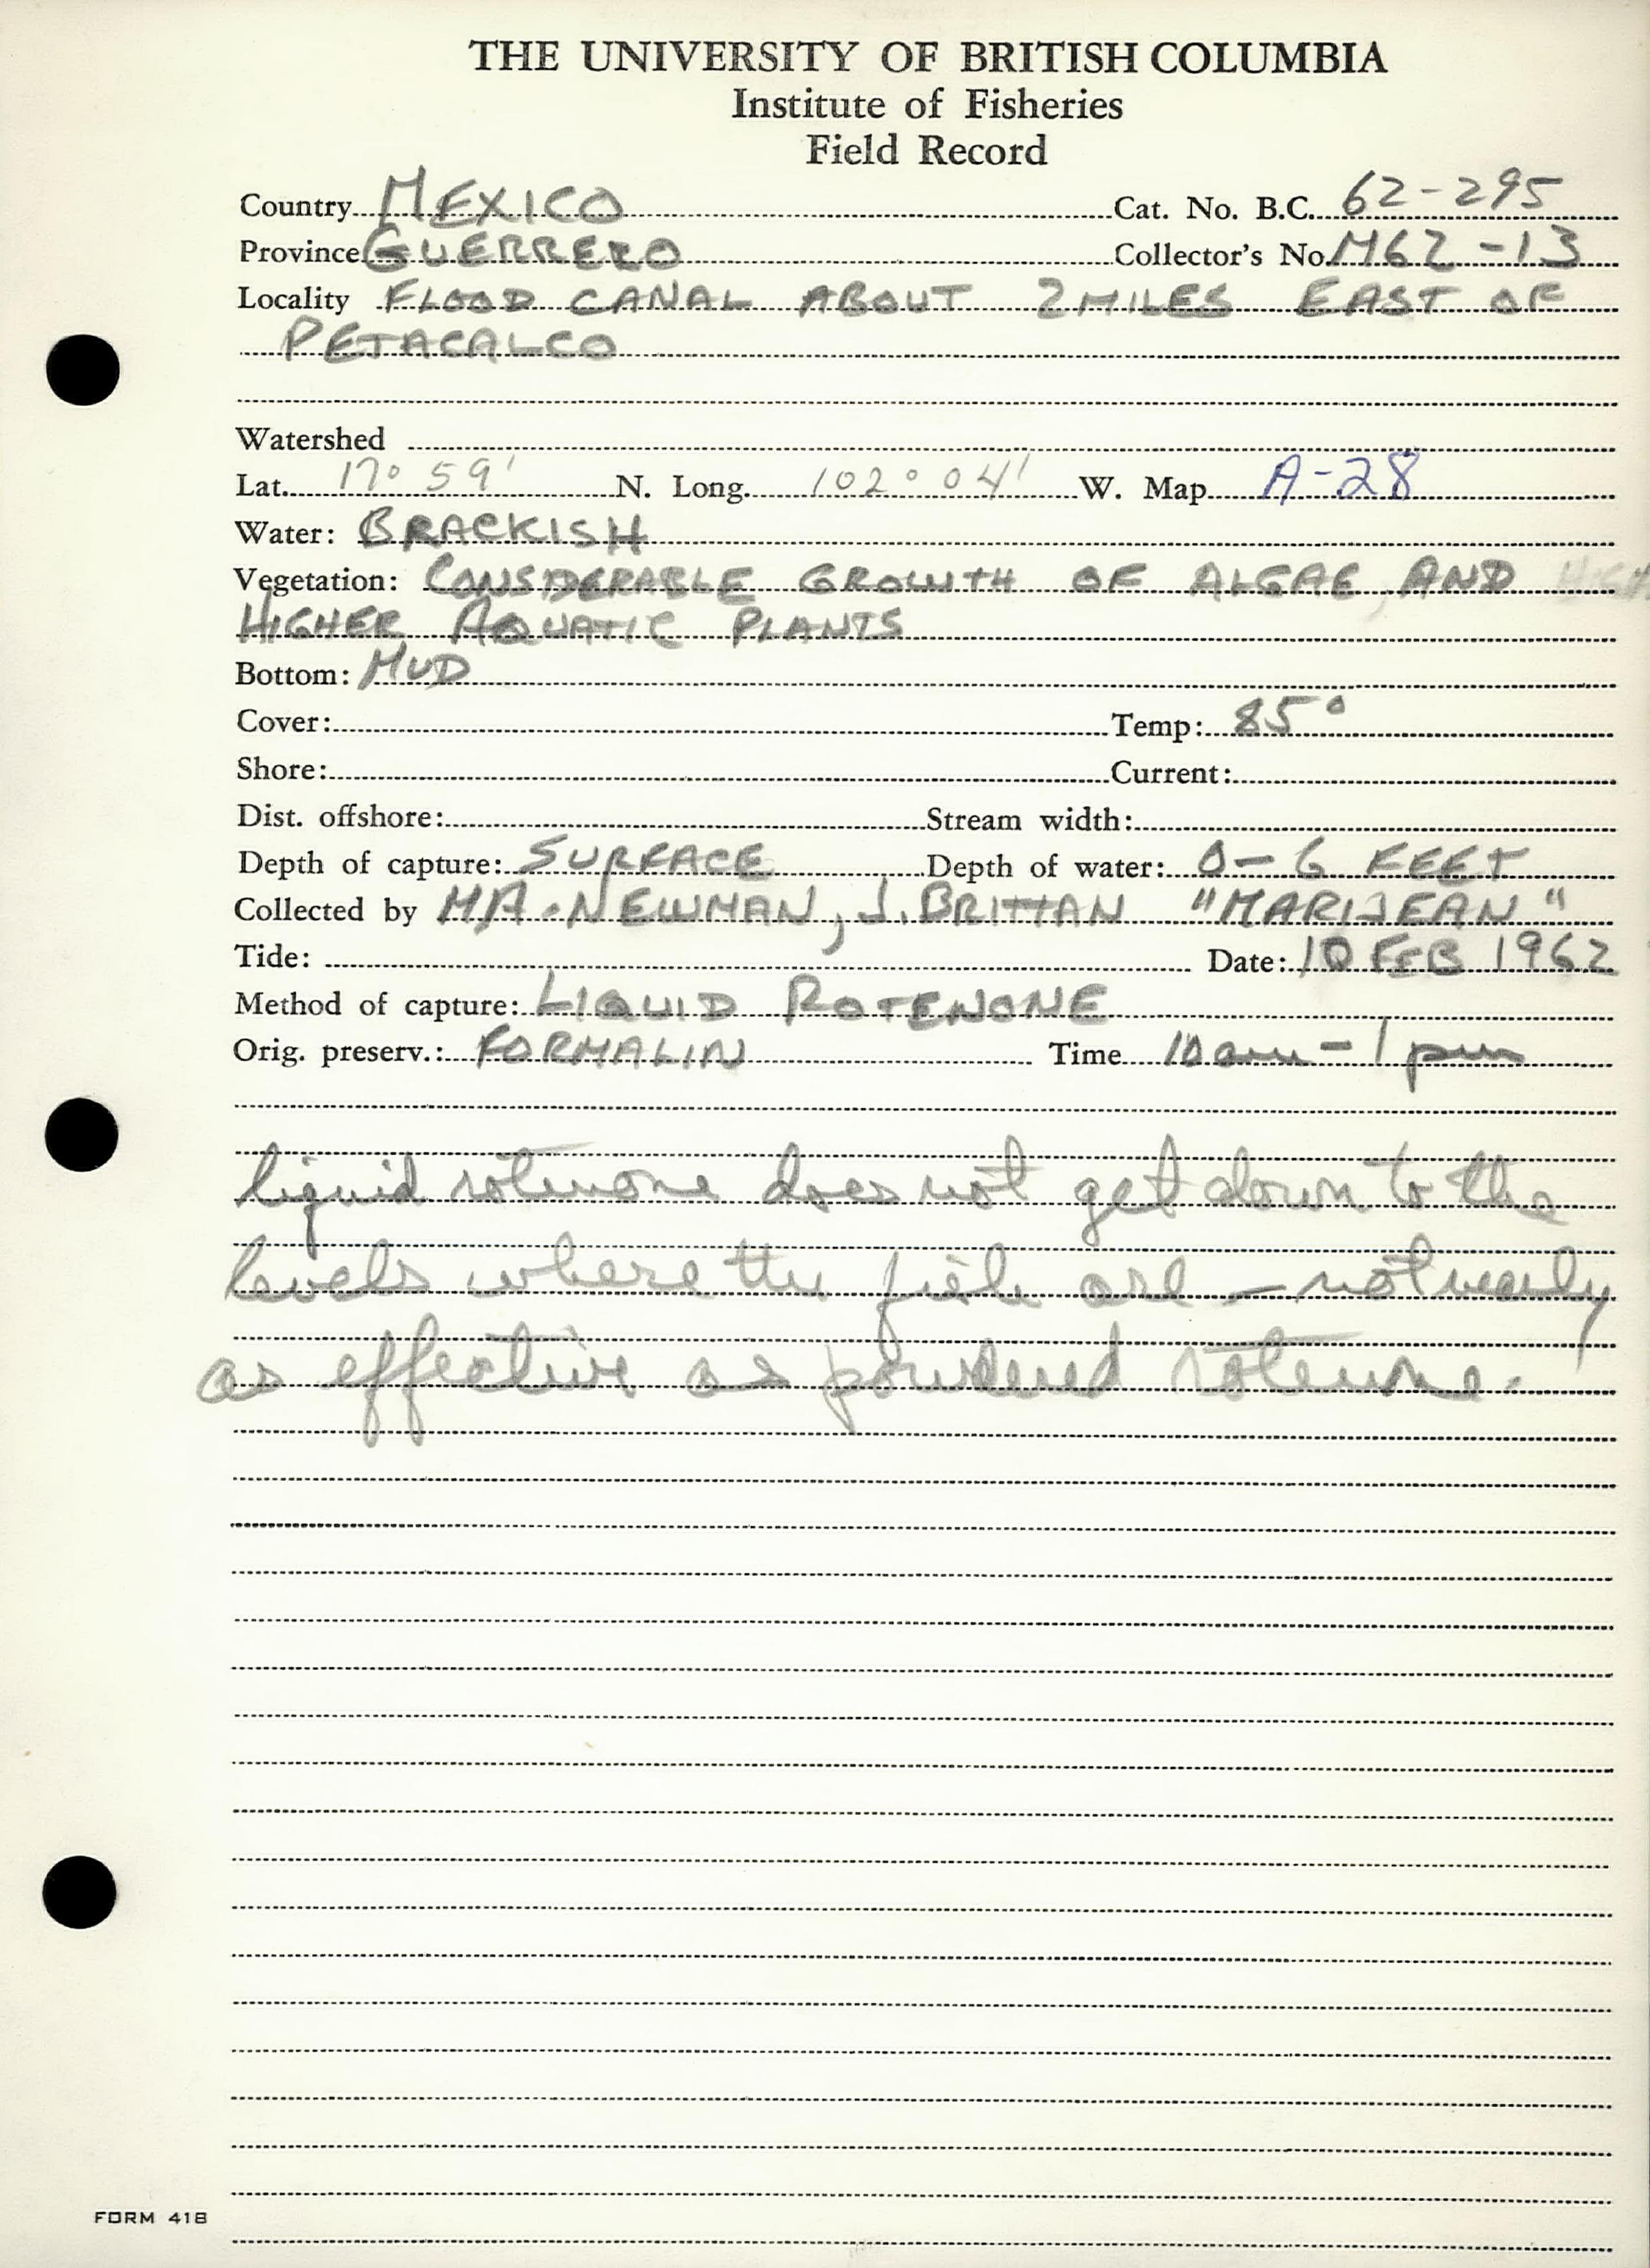 THE UNIVERSITY OF BRITISH COLUMBIA
Institute of Fisheries
Field Record
Country MEXICO Cat. No. B.C. 62-295
Province GUERRERO Collector's No. M62-13
Locality FLOOD CANAL ABOUT 2 MILES EAST OF
PETACALCO
Watershed
Lat. 17° 59' N. Long. 102° 04' W. Map A-28
Water: BRACKISH
Vegetation: CONSIDERABLE GROWTH OF ALGAE, AND HIGH
HIGHER AQUATIC PLANTS
Bottom: MUD
Cover: Temp: 85°
Shore: Current:
Dist. offshore: Stream width:
Depth of capture: SURFACE Depth of water: 0-6 FEET
Collected by MA. NEWMAN, J. BRITTAN "MARIJEAN"
Tide: Date: 10 FEB 1962
Method of capture: LIQUID ROTENONE
Orig. preserv.: FORMALIN Time 10 am - 1 pm
liquid rotenone does not get down to the
levels where the fish are - not nearly
as effective as powdered rotenone.
FORM 418